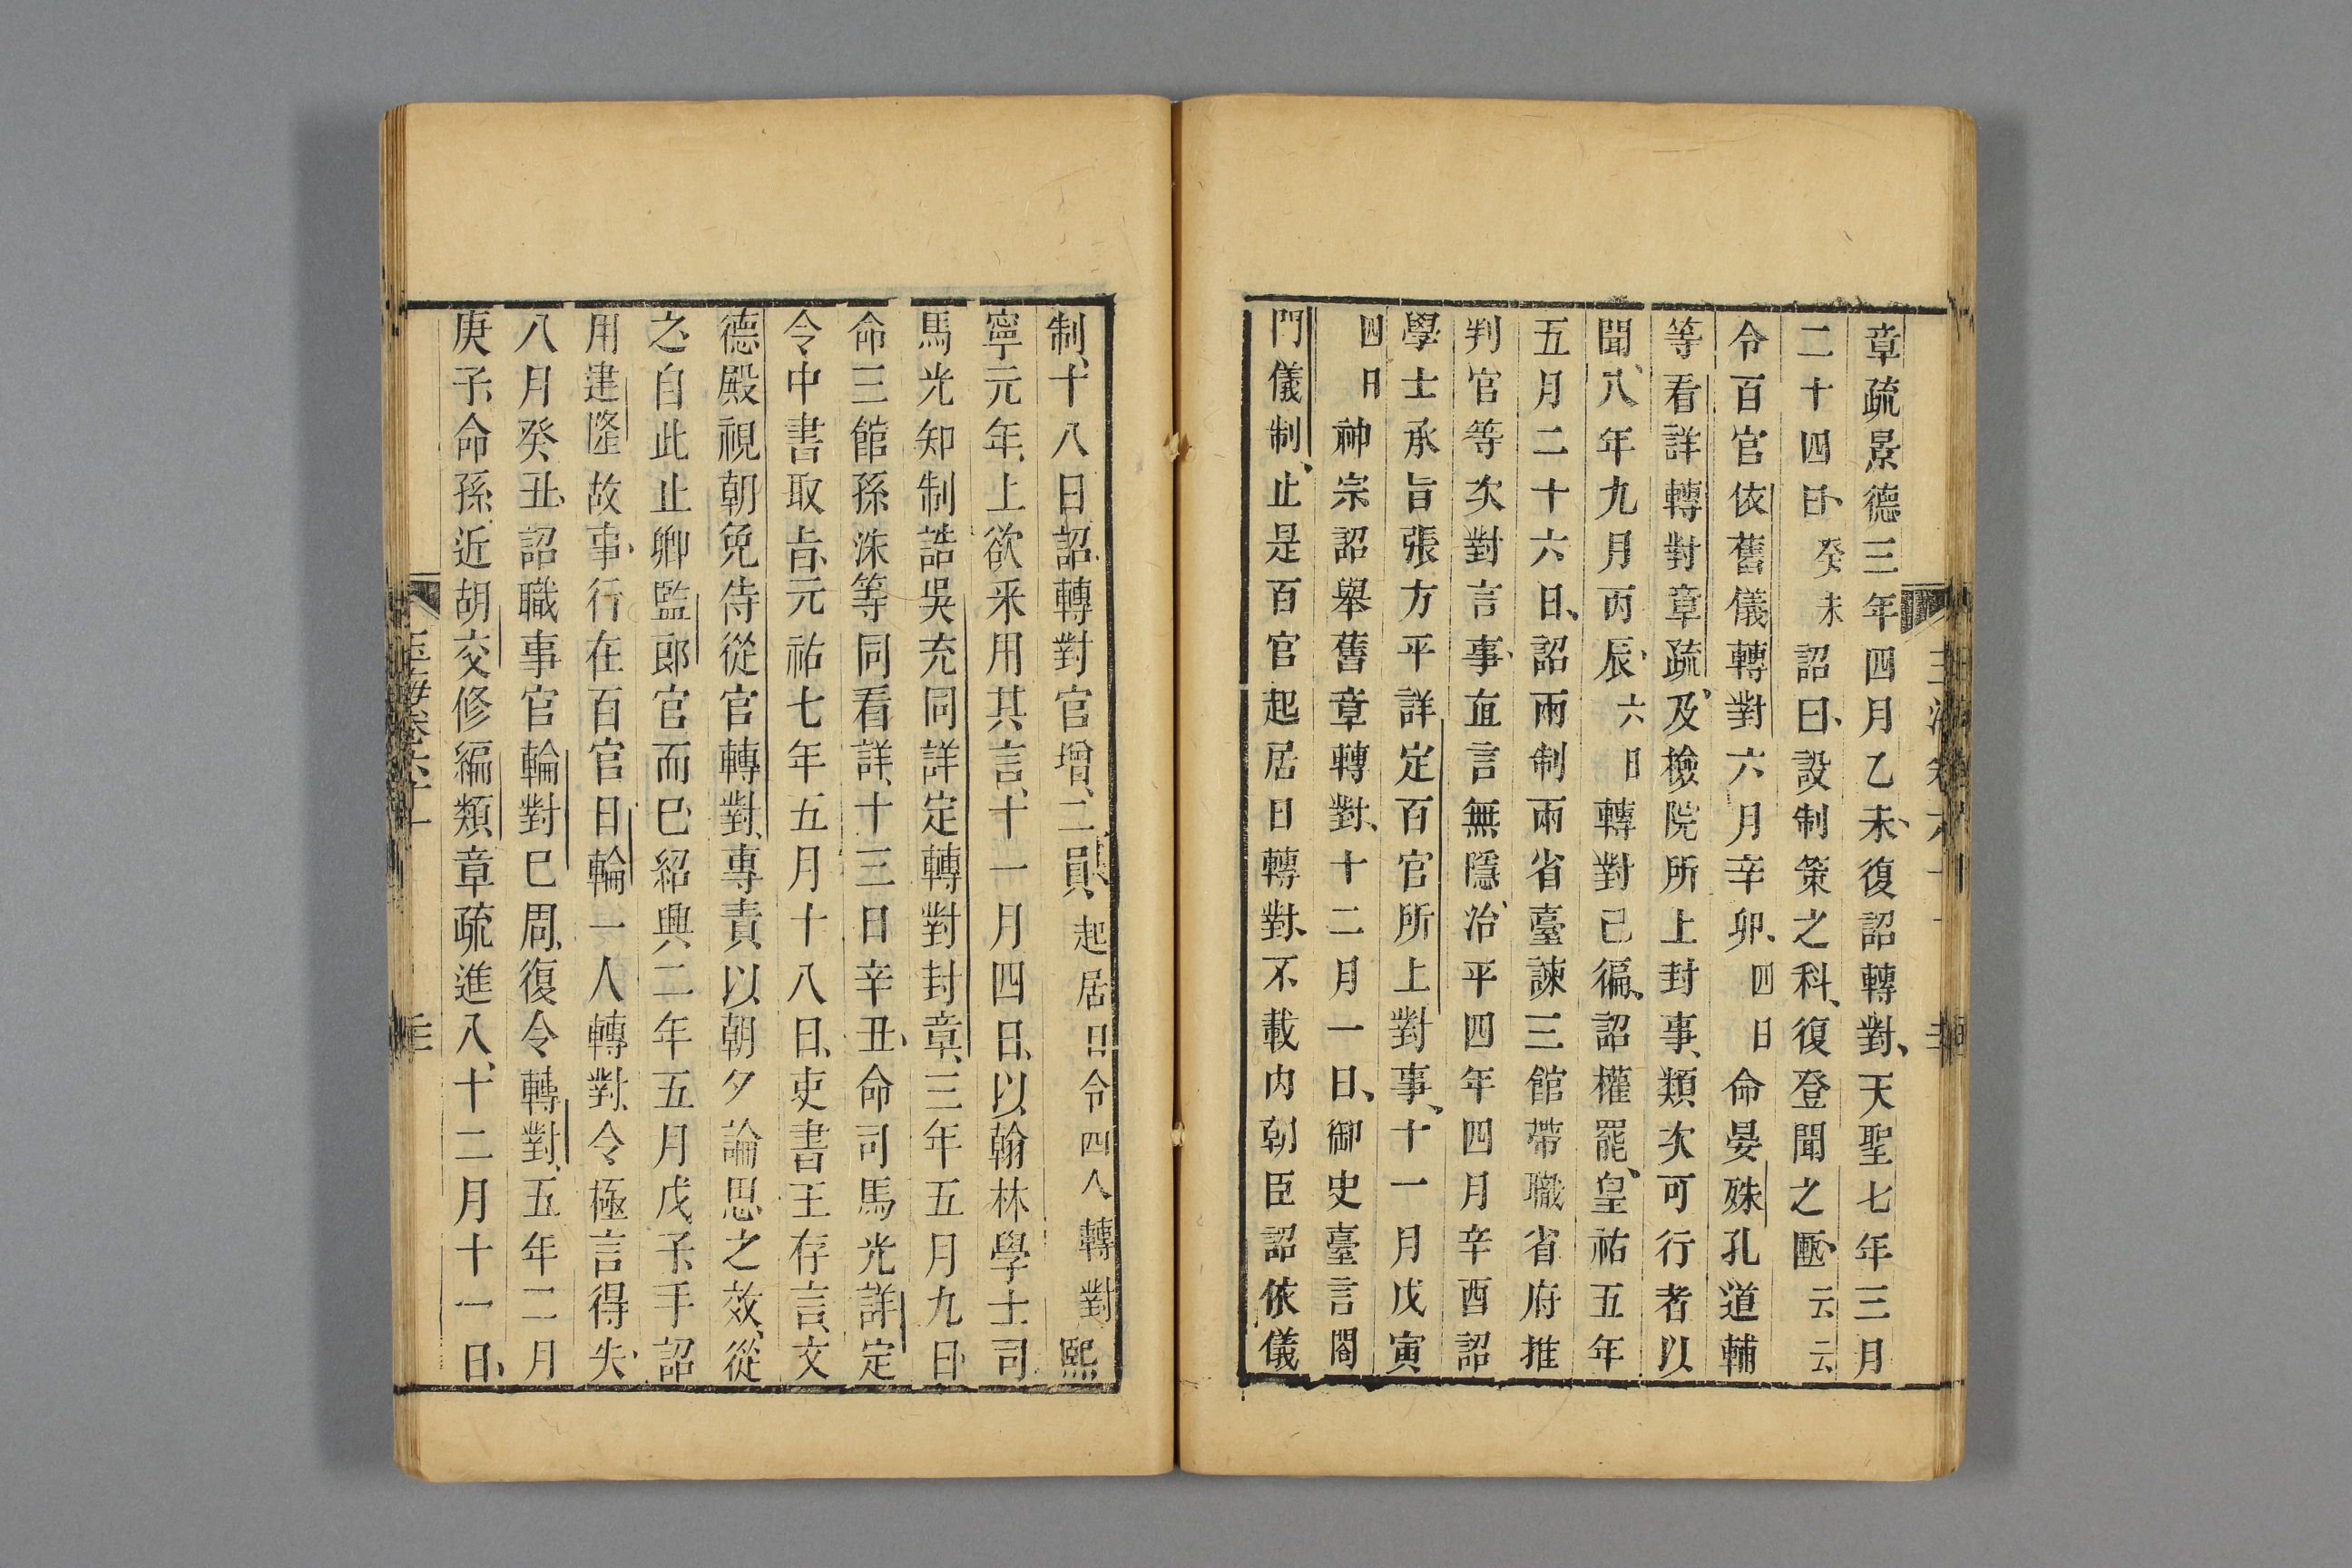 章疏景德三年四月乙未、復詔轉對、天聖七年三月
二十四日、癸未詔曰、設制策之科、復登聞之匭、云云
令百官依舊儀轉對六月辛卯、四日命晏殊孔道輔
等看詳轉對章疏、及檢院所上封事、類次可行者以
聞、八年九月丙辰、六日轉對已徧、詔權罷、皇祐五年
五月二十六日、詔兩制兩省臺諫三館帶職省府推
判官等次對言事、直言無隱、治平四年四月辛酉詔
學士承旨張方平詳定百官所上對事、十一月戊寅
四日神宗詔舉舊章轉對、十二月一日、御史臺言閤
門儀制、止是百官起居日轉對、不載內朝臣詔依儀
制、十八日詔、轉對官增、二員、起居日令四人轉對熙
寧元年、上欲釆用其言、十一月四日、以翰林學士司
馬光知制誥吳充同詳定轉對封章、三年五月九日、
命三館孫洙等同看詳、十三日辛丑、命司馬光詳定
令中書取旨、元祐七年五月十八日、吏書王存言、文
德殿視朝免侍從官轉對、專責以朝夕論思之效、從
之、自此止卿監郎官而已、紹興二年五月戊子、手詔
用建隆故事、行在百官日輪一人轉對、令極言得失、
八月癸丑、詔職事官輪對巳周、復令轉對、五年二月
庚子、命孫近胡交修編類章疏進入、十二月十一日、